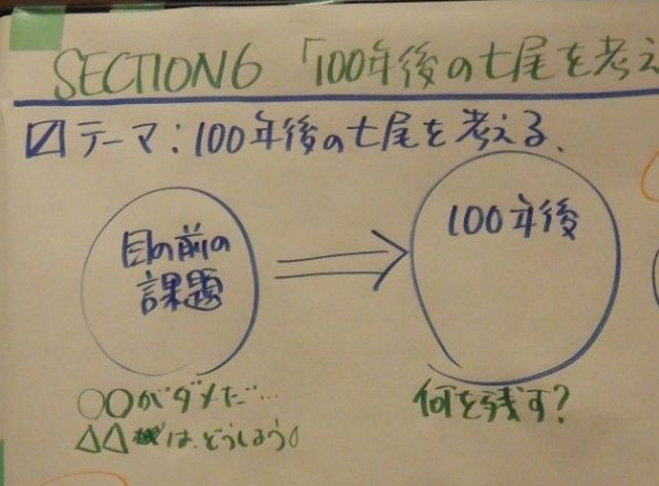 SECTION6 「100年後の七尾を考え
テーマ：100年後の七尾を考える、
目の前の
課題
100年後
○○がダメだ…
△△は、どうしよう。
何を残す？